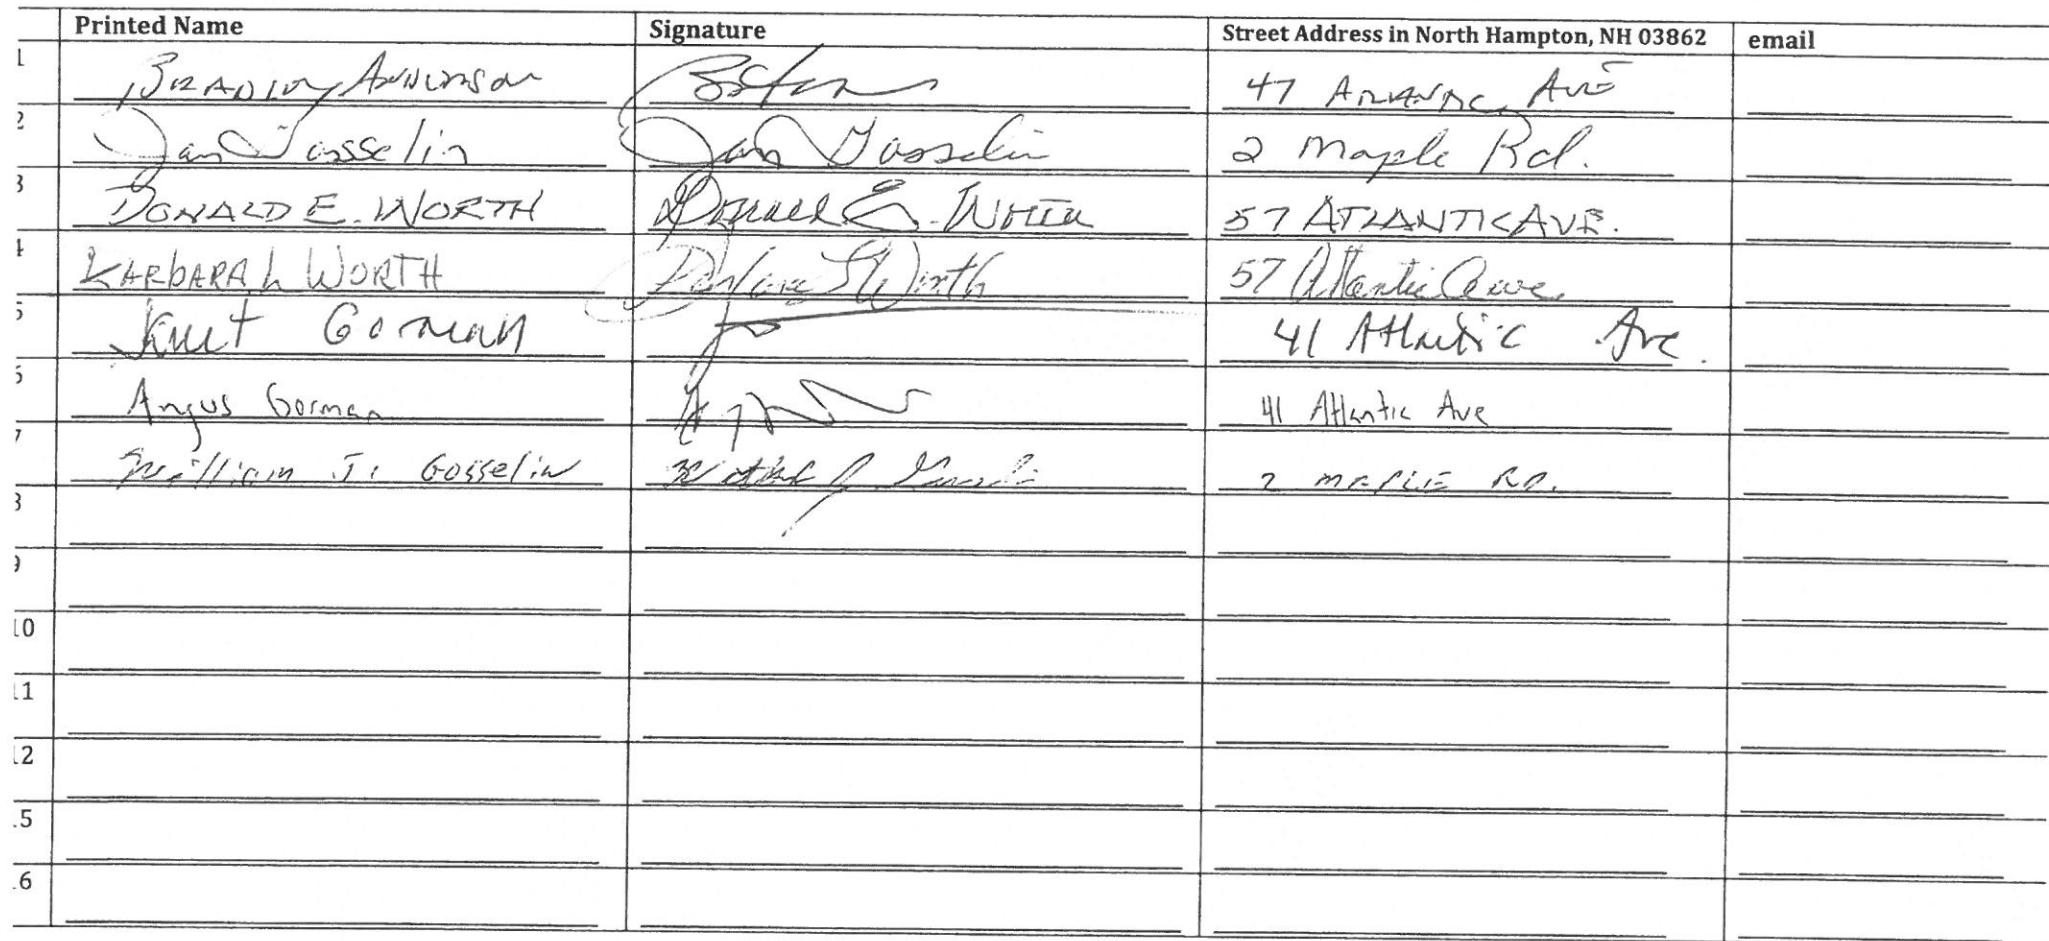 Printed Name Signature Street Address in North Hampton, NH 03862 email
1 47 Atlantic Ave
2 Jan Gosselin Jan Gosselin 2 Maple Rd.
3 DONALD E. WORTH Donald E. Worth 57 ATLANTIC AVE.
4 BARBARA L WORTH Barbara L Worth 57 Atlantic Ave
5 Gorman 41 Atlantic Ave.
6 Angus Gorman 41 Atlantic Ave
7 William J. Gosselin 2 MAPLE RD.
8
9
10
11
12
15
16